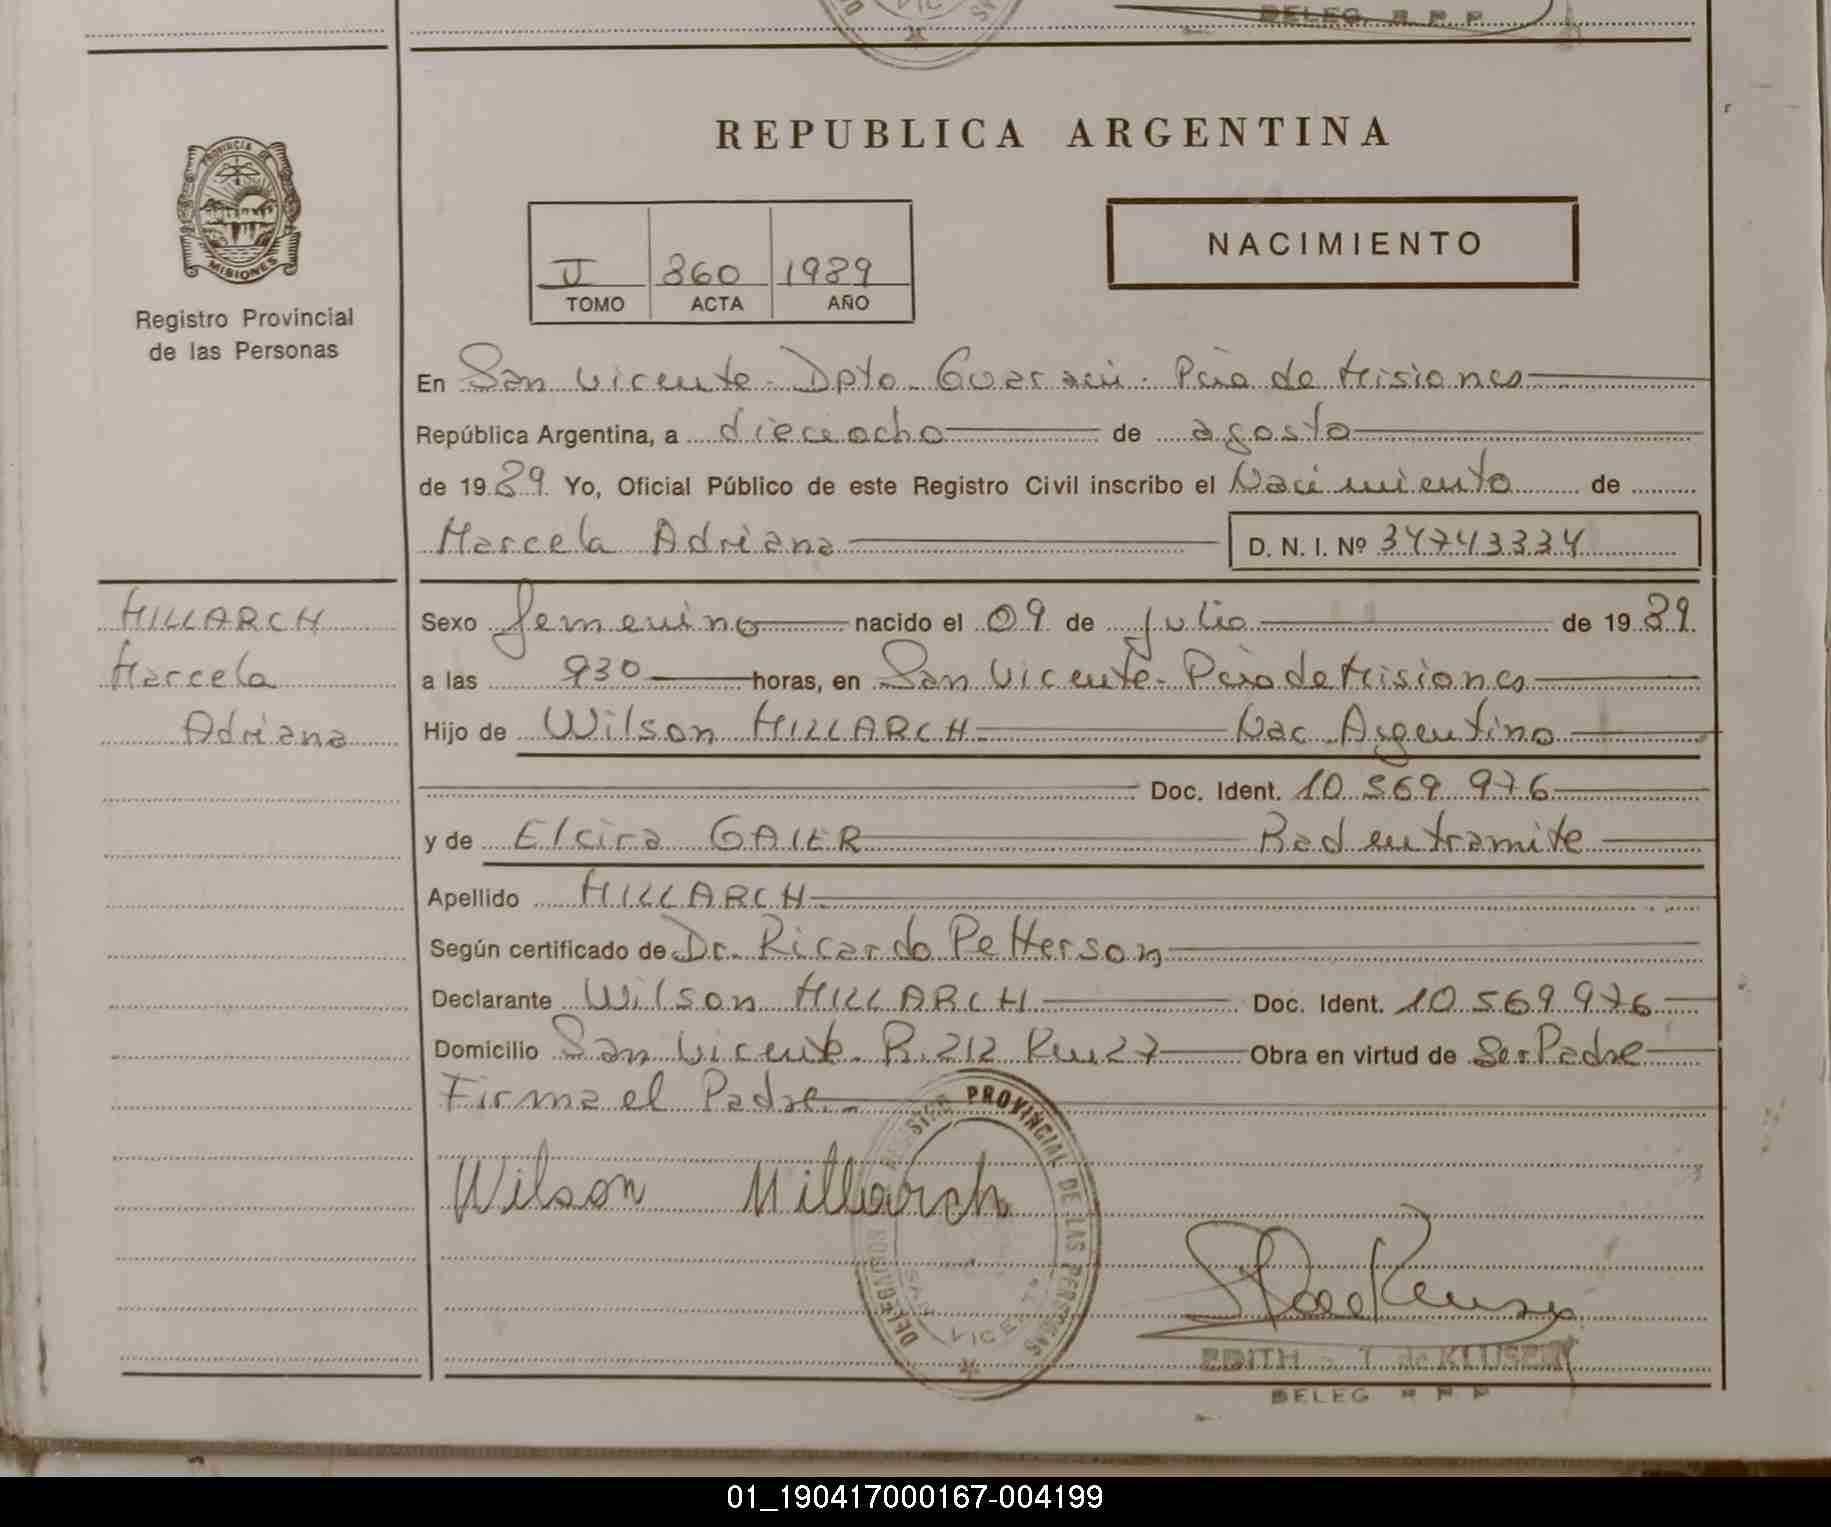 REPUBLICA ARGENTINA
PROVINCIA DE
MISIONES
Registro Provincial
de las Personas
II 860 1989
TOMO ACTA AÑO
NACIMIENTO
En San Vicente - Dpto. Guaraní - Pcia de Misiones
República Argentina, a dieciocho de agosto
de 1989. Yo, Oficial Público de este Registro Civil inscribo el Nacimiento de
Marcela Adriana D. N. I. Nº 34743334
HILLARCH
Marcela
Adriana
Sexo femenino nacido el 09 de julio de 1989.
a las 930 horas, en San Vicente - Pcia de Misiones
Hijo de Wilson HILLARCH Nac. Argentino
Doc. Ident. 10.569.976
y de Elcira GAIER Rad en tramite
Apellido HILLARCH
Según certificado de Dr. Ricardo Petterson
Declarante Wilson HILLARCH Doc. Ident. 10.569.976
Domicilio San Vicente R. 212 Km 27 Obra en virtud de Ser Padre
Firma el Padre.-
Wilson Millarch
DELEGACION REGISTRO PROVINCIAL DE LAS PERSONAS
SAN VICENTE
EDITH T. de KLUSENER
DELEG R P P
01_190417000167-004199